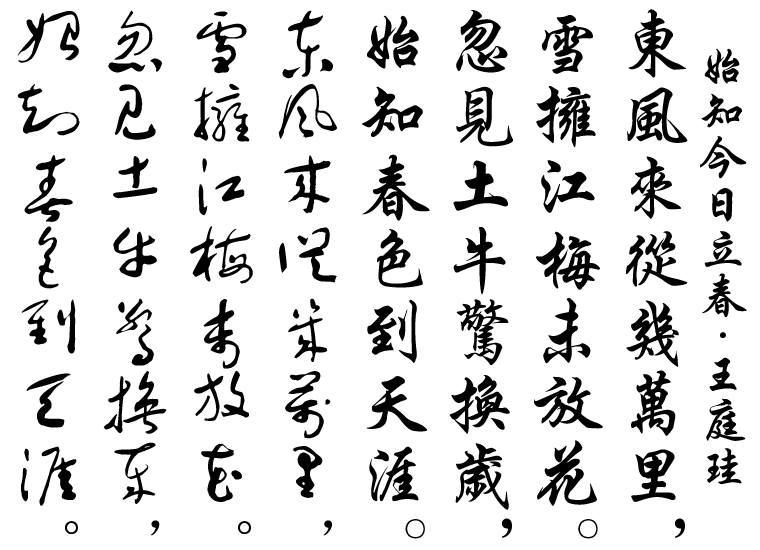 始知今日立春·王庭珪
東風來從幾萬里，
雪擁江梅未放花。
忽見土牛驚換歲，
始知春色到天涯。
东风来從幾萬里，
雪擁江梅未放花。
忽见土牛驚换东，
始知春色到天涯。